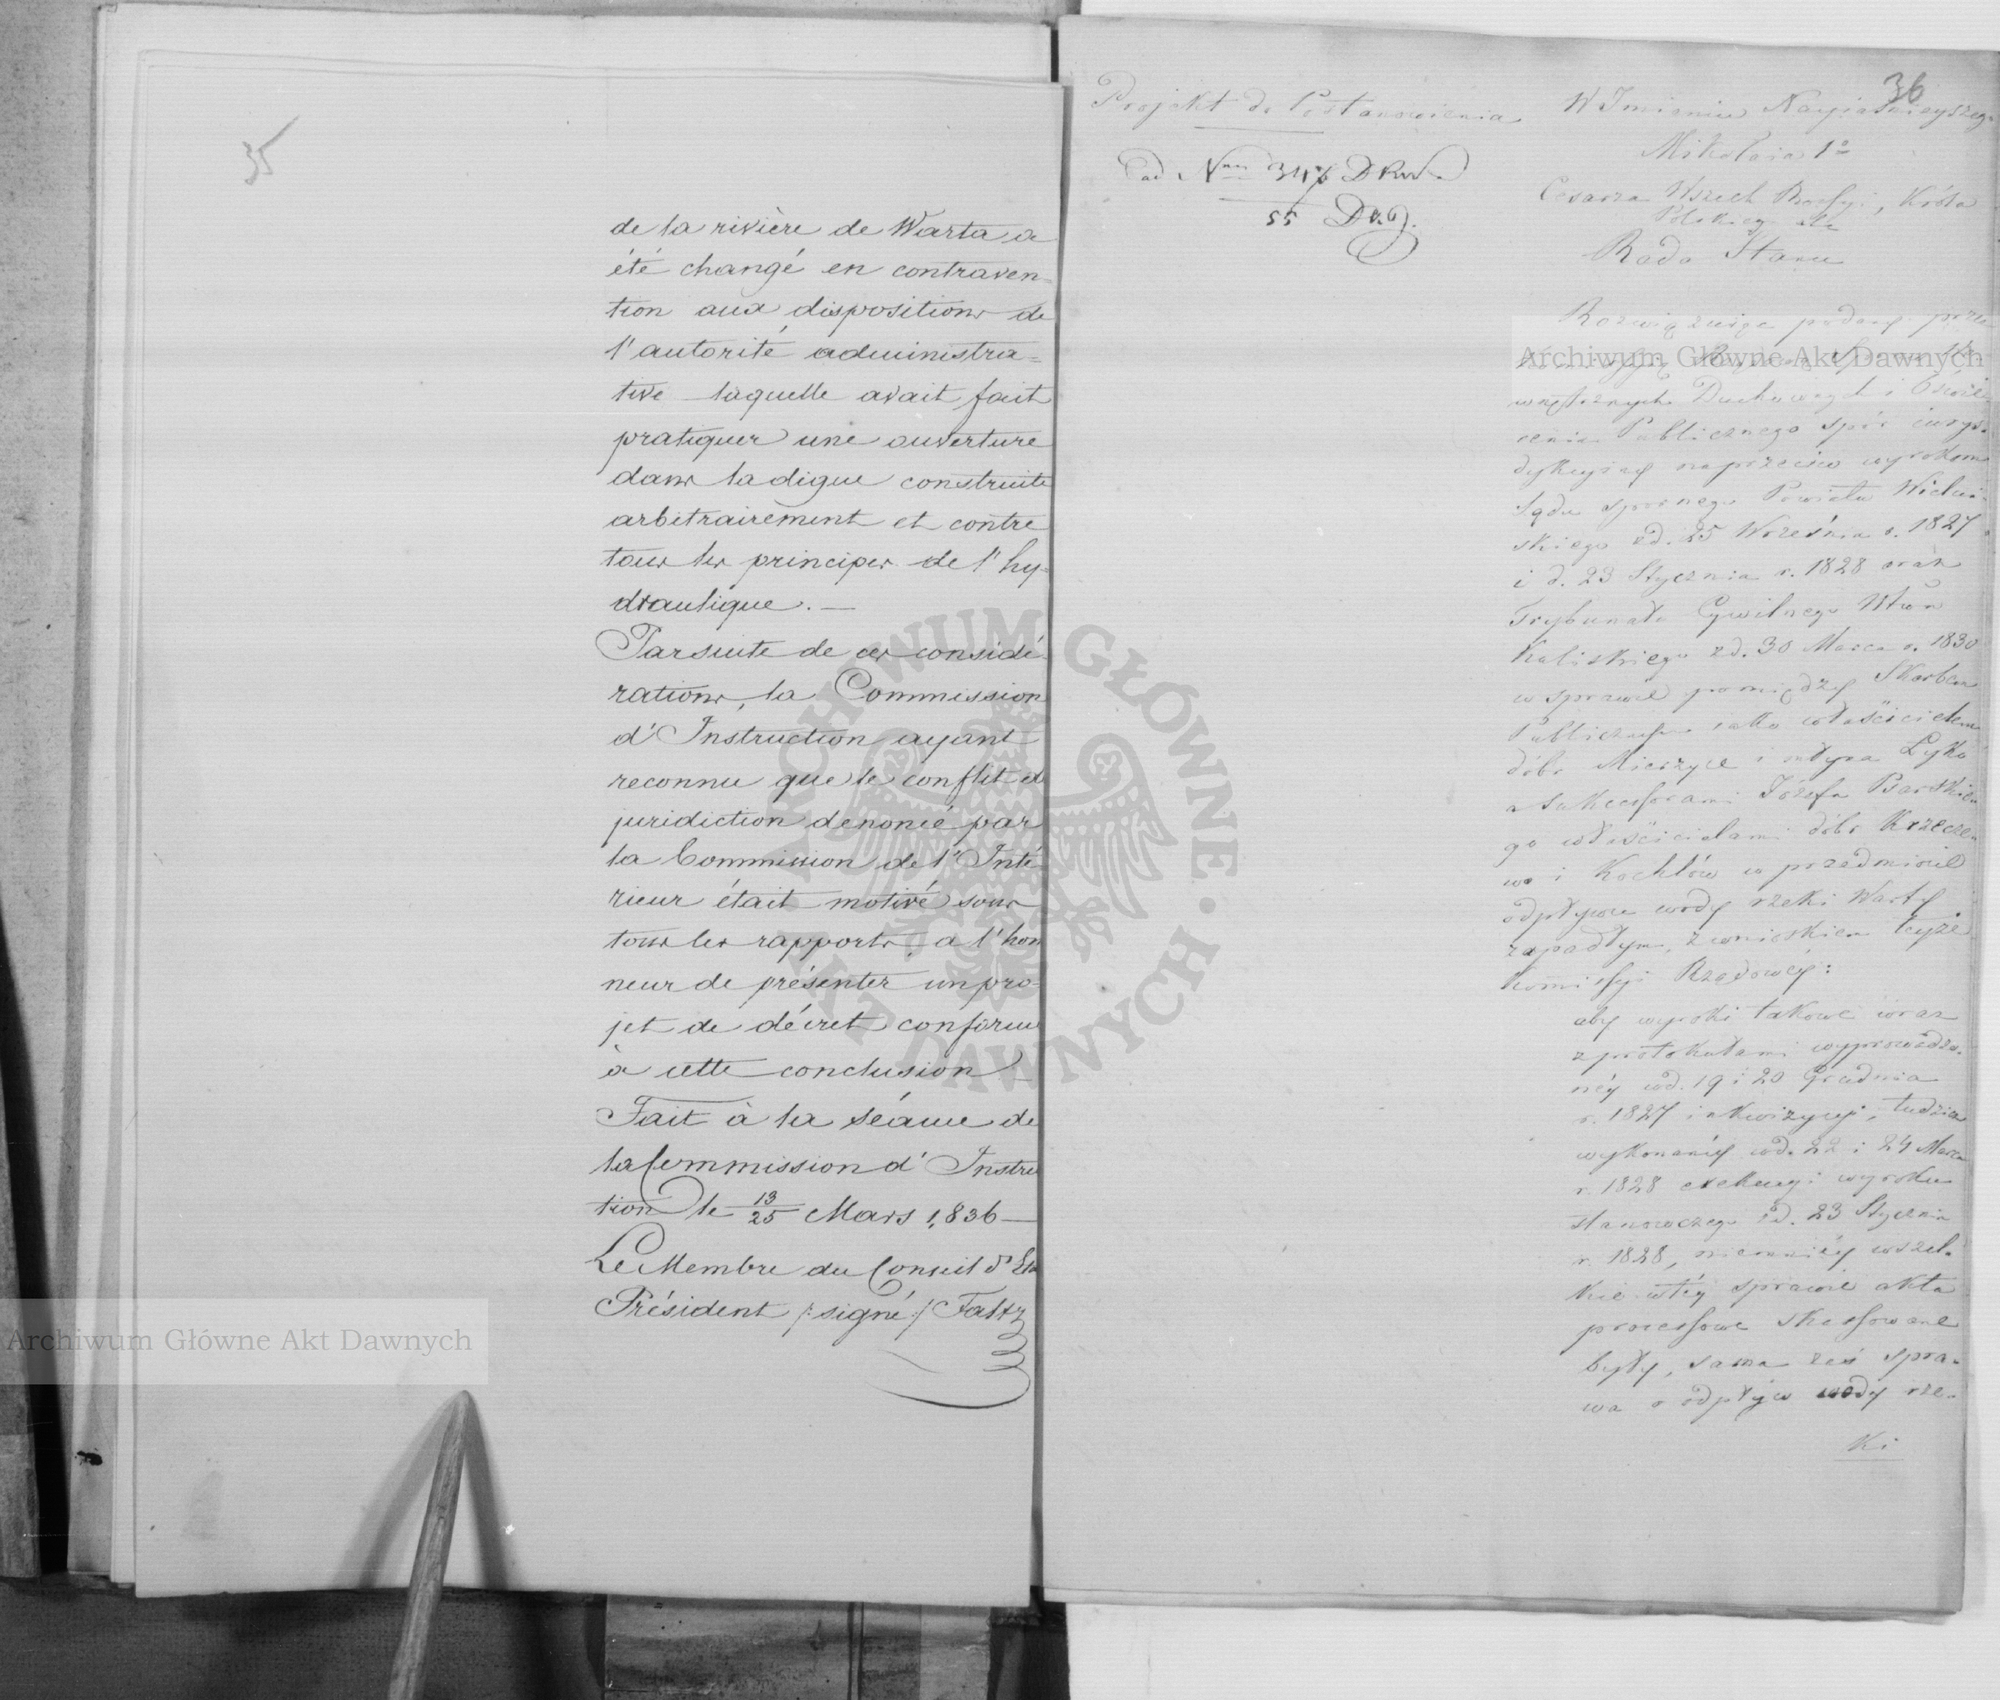 35
de la rivière de Warta a
été changé en contraven=
tion aux dispositions de
l'autorité administra=
tive laquelle avait fait
pratiquer une ouverture
dans la digue construite
arbitrairement et contre
tous les principes de l'hy=
draulique. —
Par suite de ces considé-
rations, la Commission
d'Instruction ayant
reconnu que le conflit de
juridiction dénoncé par
la Commission de l'Inté-
rieur était motivé sous
tous les rapports, a l'hon
neur de présenter un pro-
jet de décret conforme
à cette conclusion —
Fait à la séance de
la Commission d'Instru
tion le 13/25 Mars 1,836 —
Le Membre du Conseil d'Eta
Président /: signé :/ Faltz
36
Projekt do Postanowienia
ad Num 347/55 D.
W Imieniu Nayiaśnieyszego
Mikołaia 1o
Cesarza Wszech Rossyi, Króla
Polskiego etc
Rada Stanu
Rozwiązuiąc podany przez
Spraw We-
wnętrznych Duchownych i Oświe-
cenia Publicznego spór iurys-
dykcyiny naprzeciw wyrokom
Sądu spornego Powiatu Wieluń-
skiego z d. 25 Września r. 1827
i d. 23 Stycznia r. 1828 oraz
Trybunału Cywilnego Wdwa
Kaliskiego z d. 30 Marca r. 1830
w sprawie pomiędzy Skarbem
Publicznym iako właścicielem
dóbr Mierzyce i młyna Łyko
a Sukcessorami Józefa Psarskie-
go właścicielami dóbr Krzeczo-
wa i Kochlów w przedmiocie
odpływu wody rzeki Warty
zapadłym, z wnioskiem teyże
Kommissyi Rządowéy:
aby wyroki takowe wraz
z protokułami wyprowadzo-
néy w d. 19 i 20 Grudnia
r. 1827 inkwizycyi, tudzież
wykonanéy w d. 22 i 24 Marca
r. 1828 exekucyi wyroku
stanowczego z d. 23 Stycznia
r. 1828, niemniéy wszel-
kie w téy sprawie akta
processowe skassowane
były, sama zaś spra-
wa o odpływ wody rze-
ki
Archiwum Główne Akt Dawnych
Archiwum Główne Akt Dawnych
ARCHIWUM GŁÓWNE AKT DAWNYCH